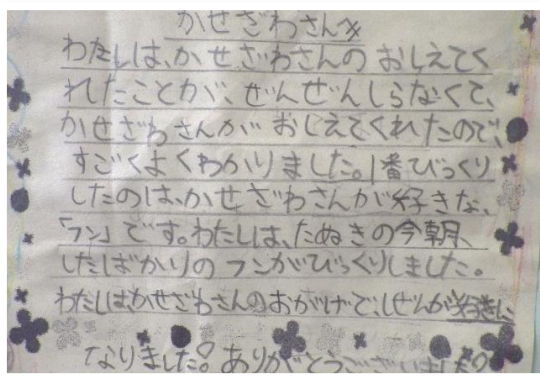 かせざわさんへ
わたしは、かせざわさんの おしえてく
れたことが、ぜんぜんしらなくて、
かせざわさんが おしえてくれたので、
すごくよくわかりました。1番びっくり
したのは、かせざわさんが好きな、
「フン」です。わたしは、たぬきの今朝、
したばかりのフンがびっくりしました。
わたしは、かせざわさんのおがげで、しぜんが好きに
なりました。ありがとうございました。